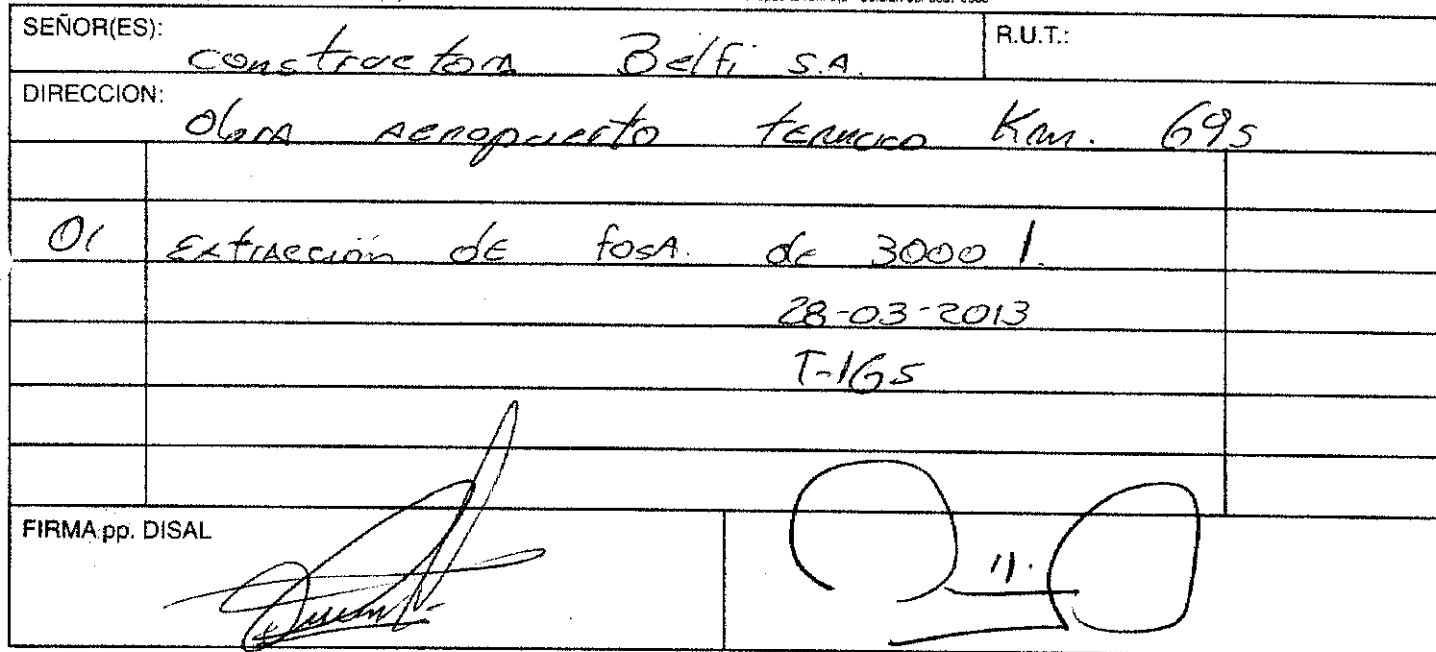 SEÑOR(ES): Constructora Belfi S.A. R.U.T.:
DIRECCION: Obra Aeropuerto Temuco Km. 695
01 Extracción de fosa. de 3000 l.
28-03-2013
T-165
FIRMA pp. DISAL